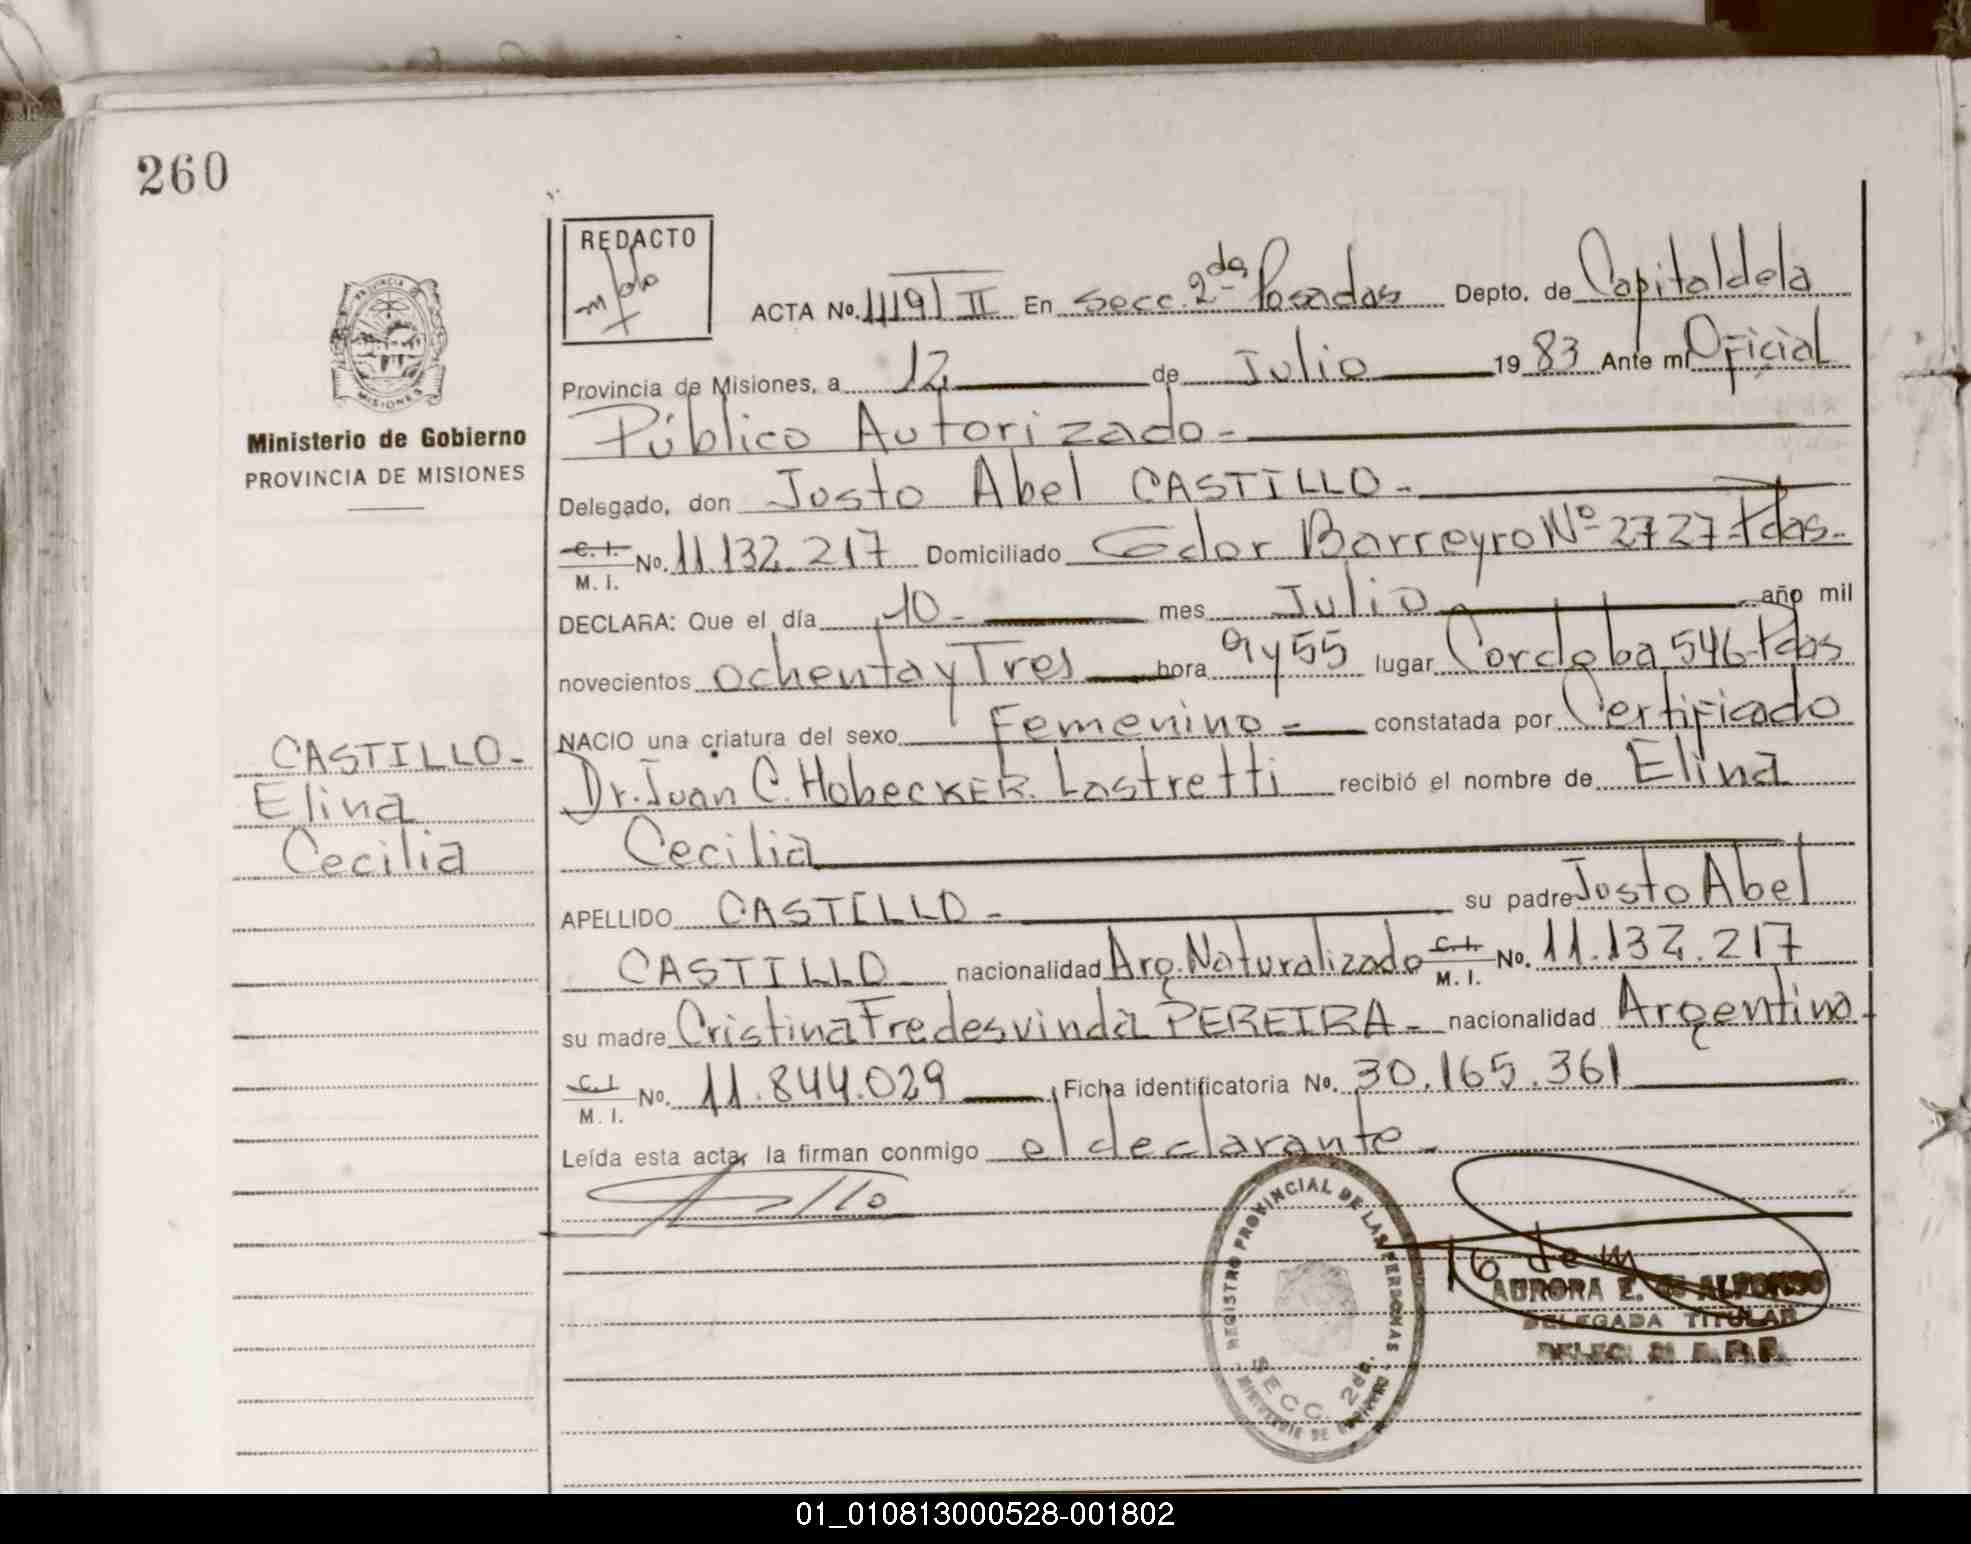 260
REDACTO
PROVINCIA DE
MISIONES
Ministerio de Gobierno
PROVINCIA DE MISIONES
ACTA No. 1119 II En Secc. 2da Posadas Depto. de Capital de la
Provincia de Misiones, a 12 de Julio 1983 Ante mí Oficial
Público Autorizado-
Delegado, don Justo Abel CASTILLO-
C. I.
M. I. No. 11.132.217 Domiciliado Gdor Barreyro Nº 2727-Pdas-
DECLARA: Que el día 10- mes Julio año mil
novecientos ochenta y Tres hora 9 y 55 lugar Cordoba 546-Pdas
NACIO una criatura del sexo Femenino- constatada por Certificado
Dr. Juan C. Hobecker. Lastretti recibió el nombre de Elina
Cecilia
APELLIDO CASTILLO- su padre Justo Abel
CASTILLO nacionalidad Arg. Naturalizado C. I. M. I. No. 11.132.217
su madre Cristina Fredesvinda PEREIRA- nacionalidad Argentina
C. I.
M. I. No. 11.844.029 Ficha identificatoria No. 30.165.361
Leída esta acta, la firman conmigo el declarante-
CASTILLO-
Elina
Cecilia
REGISTRO PROVINCIAL DE LAS PERSONAS
SECC. 2da.
MINISTERIO DE GOBIERNO
AURORA E. de ALFONSO
DELEGADA TITULAR
01_010813000528-001802